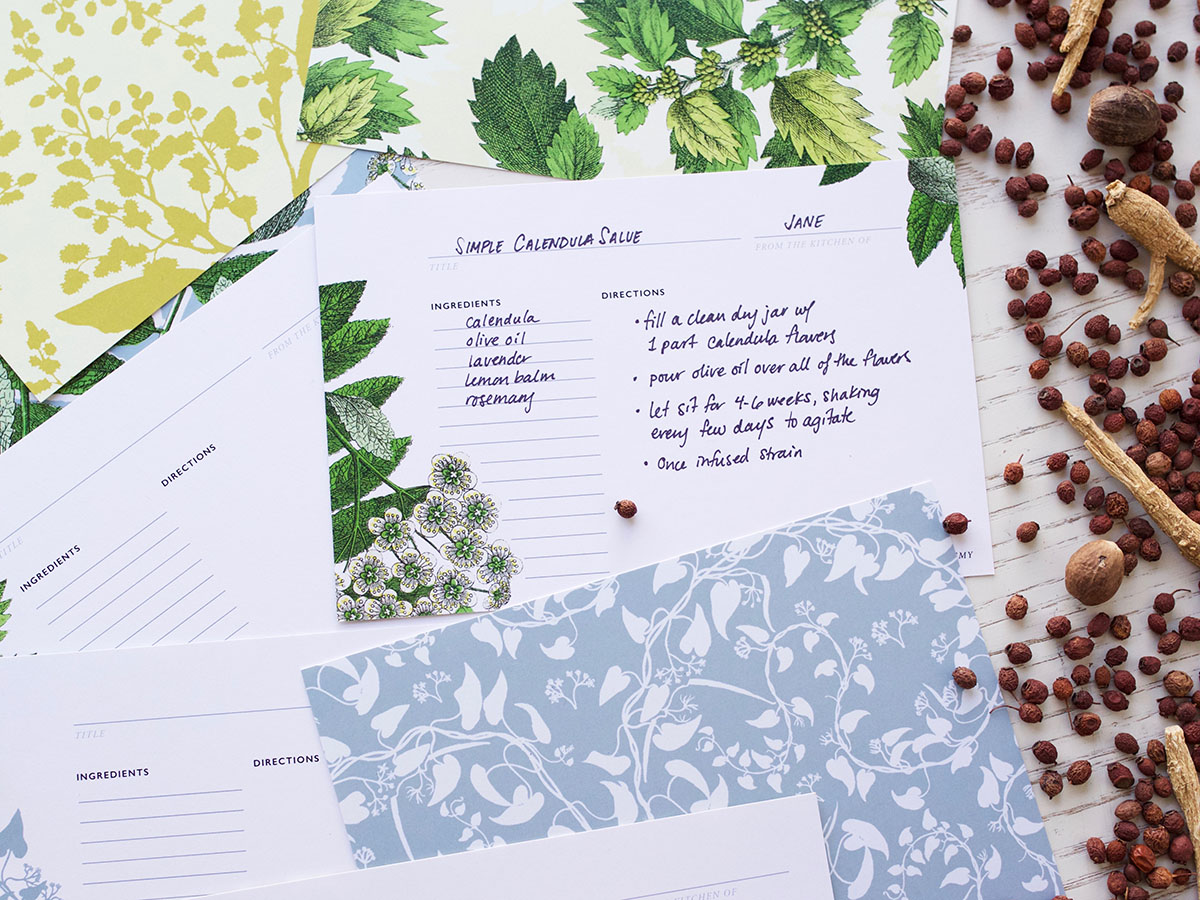 SIMPLE CALENDULA SALVE
TITLE
JANE
FROM THE KITCHEN OF
INGREDIENTS
calendula
olive oil
lavender
lemon balm
rosemary
DIRECTIONS
• fill a clean dry jar w/
1 part calendula flowers
• pour olive oil over all of the flowers
• let sit for 4-6 weeks, shaking
every few days to agitate
• Once infused strain
FROM THE K
TITLE
DIRECTIONS
INGREDIENTS
TITLE
INGREDIENTS
DIRECTIONS
KITCHEN OF